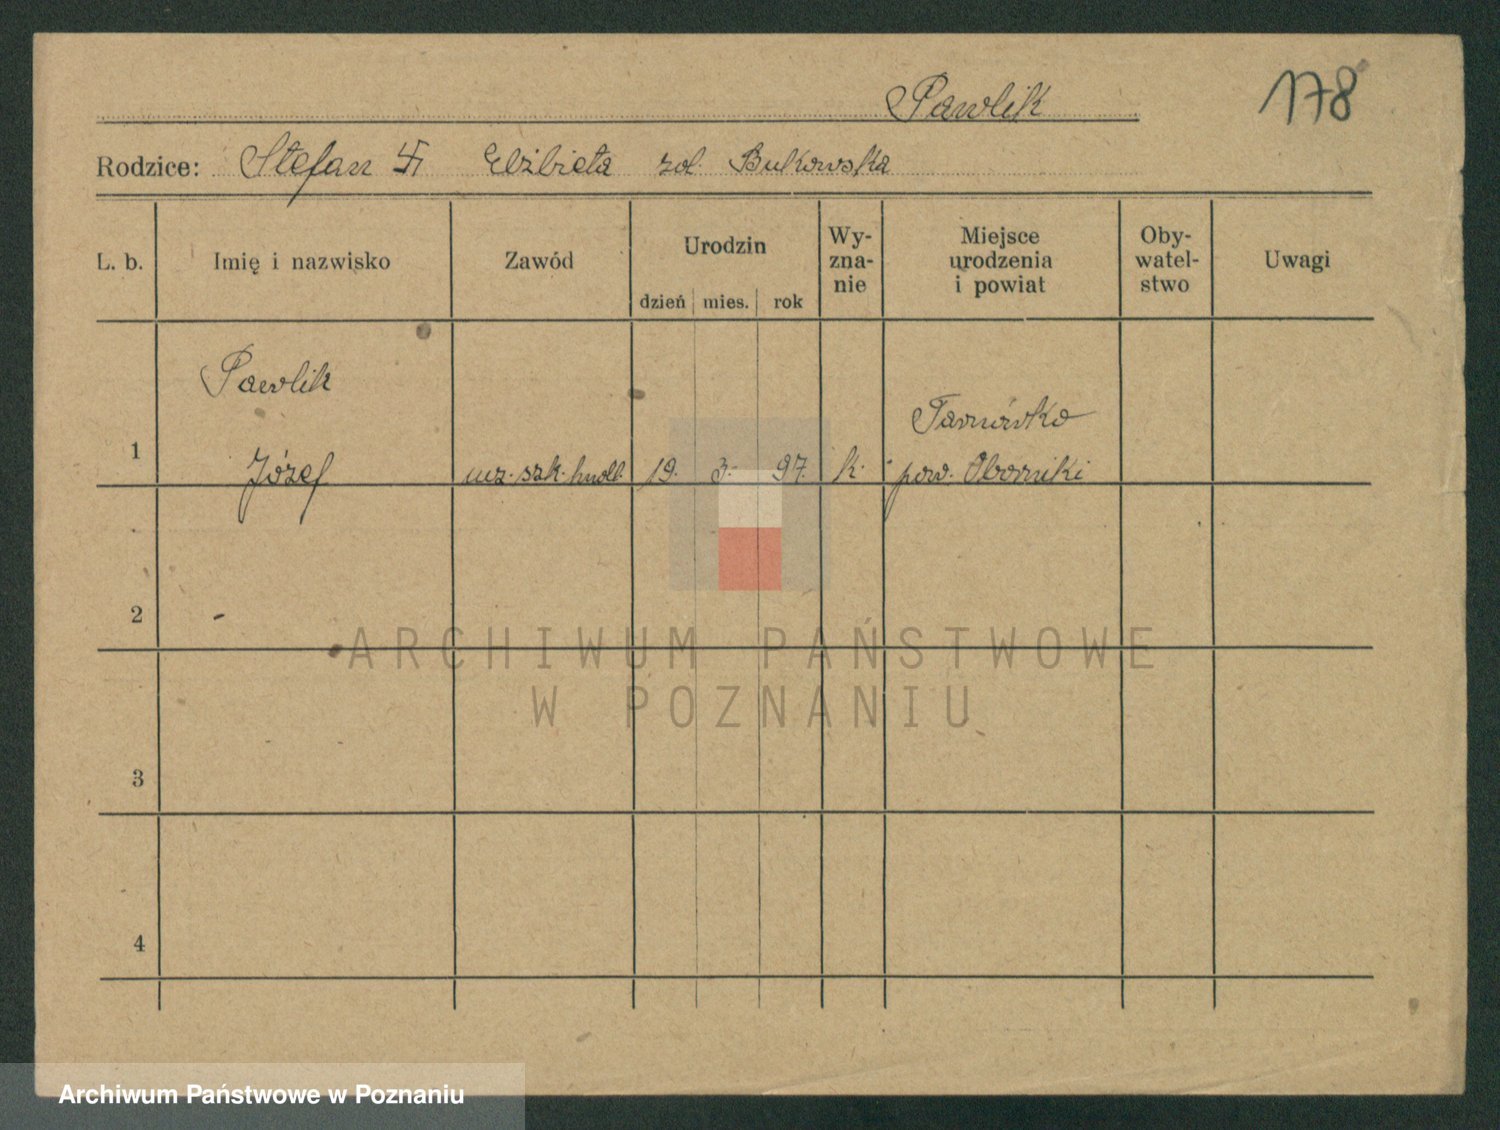 Pawlik
178
Rodzice: Stefan i Elżbieta Bukowska
L. b. Imię i nazwisko Zawód Urodzin dzień mies. rok Wy-zna-nie Miejsce urodzenia i powiat Oby-watel-stwo Uwagi
Pawlik
Tarnówko
1 Józef szk. 19. 3. 97. k. pow. Oborniki
2
3
4
ARCHIWUM PAŃSTWOWE
W POZNANIU
Archiwum Państwowe w Poznaniu